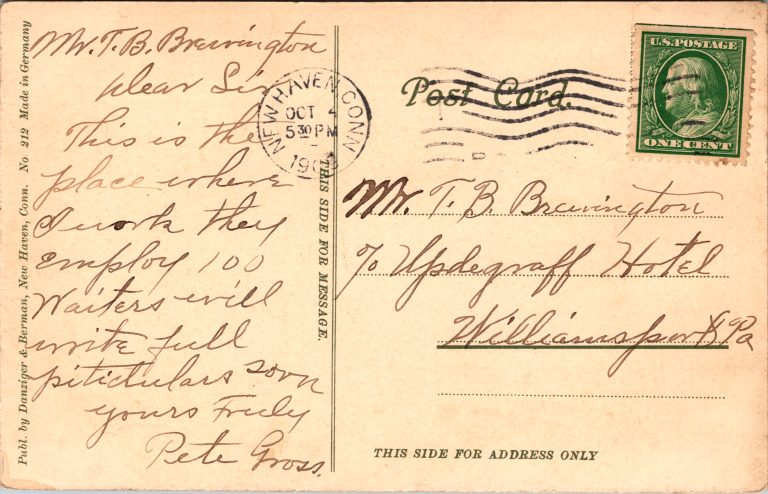 Publ. by Danziger & Berman, New Haven, Conn. No. 212 Made in Germany
Mr. T. B. Brevington
Dear Sir
This is the
place where
I work they
Employ 100
Waiters will
write full
pitidulars soon
yours Truly
Pete Gross.
THIS SIDE FOR MESSAGE.
NEW HAVEN, CONN
OCT 4
5 30 PM
Post Card.
U.S. POSTAGE
ONE CENT
Mr. T. B. Brevington
c/o Updegraff Hotel
Williamsport Pa
THIS SIDE FOR ADDRESS ONLY